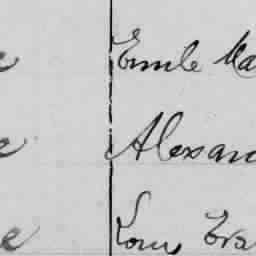 e Emile Ma
e Alexan
e Louis Era